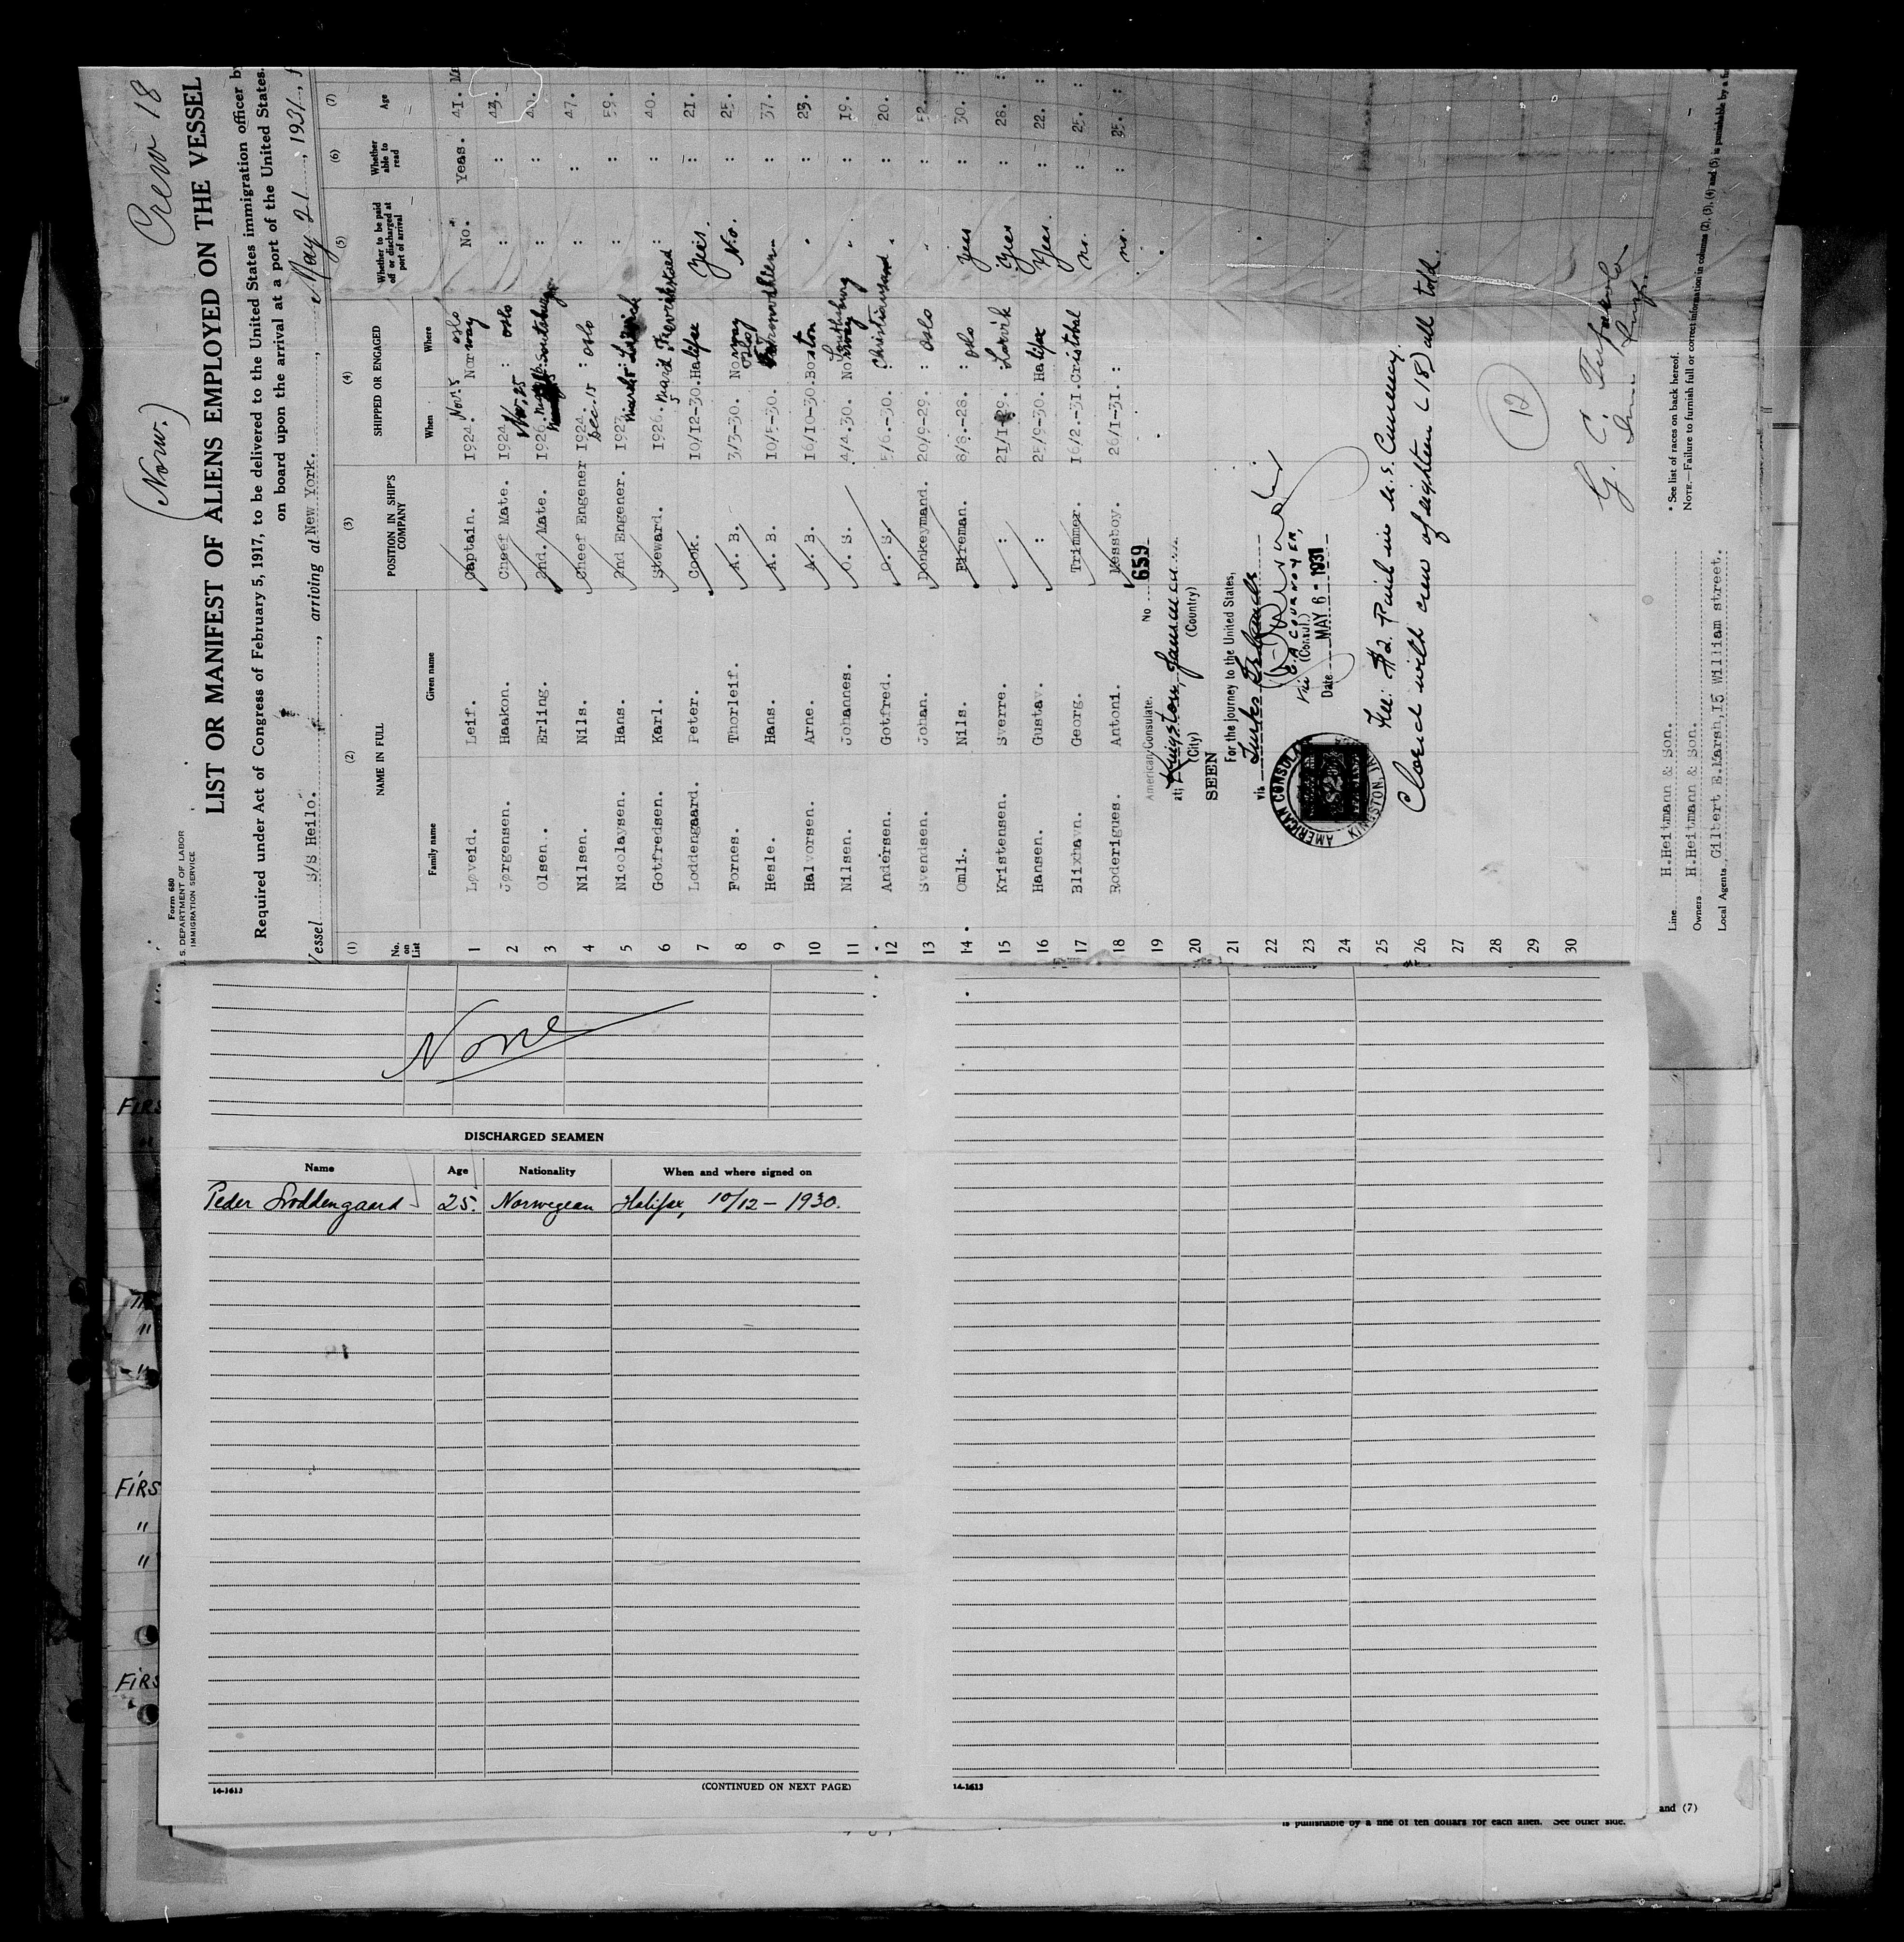 (Now.) Crew 18
Form 680
S. DEPARTMENT OF LABOR
IMMIGRATION SERVICE
LIST OR MANIFEST OF ALIENS EMPLOYED ON THE VESSEL
Required under Act of Congress of February 5, 1917, to be delivered to the United States immigration officer by
on board upon the arrival at a port of the United States.
Vessel S/S Heilo., arriving at New York., May 21, 1931,
(1) (2) (3) (4) (5) (6) (7)
No. on List NAME IN FULL POSITION IN SHIP'S COMPANY SHIPPED OR ENGAGED Whether to be paid off or discharged at port of arrival Whether able to read Age
Family name Given name When Where
1 Løveid. Leif. Captain. 1924. Nov. 5 Norway oslo No. Yeas. 41.
2 Jørgensen. Haakon. Cheef Mate. 1924. Nov. 25 : oslo : : 43.
3 Olsen. Erling. 2nd. Mate. 1926. : :
4 Nilsen. Nils. Cheef Engener 1924. Dec. 15 : oslo : : 47.
5 Nicolaysen. Hans. 2nd Engener. 1927. : : 59.
6 Gotfredsen. Karl. Steward. 1926. : : 40.
7 Loddengaard. Peter. Cook. 10/12-30. Halifax Yeas. : 21.
8 Fornes. Thorleif. A. B. 3/3-30. Norway oslo No. : 25.
9 Hesle. Hans. A. B. 10/5-30. : 37.
10 Halvorsen. Arne. A. B. 16/10-30. Boston " : 23.
11 Nilsen. Johannes. O. S. 4/4-30. " : 19.
12 Andersen. Gotfred. O. S. 5/6.-30. : Christiansand. " : 20.
13 Svendsen. Johan. Donkeymand. 20/9-29. : oslo " : 52.
14 Omli. Nils. Fireman. 8/8.-28. : oslo yeas : 30.
15 Kristensen. Sverre. : 21/1-29. Larvik Yeas : 28.
16 Hansen. Gustav. : 25/9-30. Halifax Yeas. : 22.
17 Blixhavn. Georg. Trimmer. 16/2.-31. Cristobal no. : 25.
18 Roderigues. Antoni. Messboy. 26/1-31. : no. : 25.
19
20
21
22
23
24
25
26
27
28
29
30
American Consulate. No 659
at Kingston, Jamaica
(City) (Country)
SEEN
For the journey to the United States,
via Turks Islands
(Consul)
Date MAY 6 - 1931
AMERICAN CONSULATE
KINGSTON, J
Fee: $2. Paid in U.S. Currency.
Closed with crew of eighteen (18) all told.
12
Line H.Heitmann & Son.
Owners H.Heitmann & Son.
Local Agents Gilbert E.Marsh, 15 William street.
* See list of races on back hereof.
NOTE.—Failure to furnish full or correct information in columns (2), (3), (4) and (5) is punishable by a
None
DISCHARGED SEAMEN
Name Age Nationality When and where signed on
Peder Loddengaard 25. Norwegean Halifax, 10/12 – 1930.
14-1613 (CONTINUED ON NEXT PAGE)
14-1613
FIRS
"
"
FIRS
"
"
FIRS
and (7)
is punishable by a fine of ten dollars for each alien. See other side.